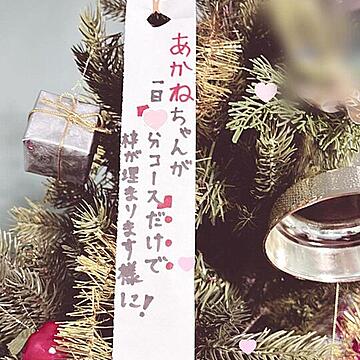 あかねちゃんが
一日 分コースだけで
枠が埋まります様に!